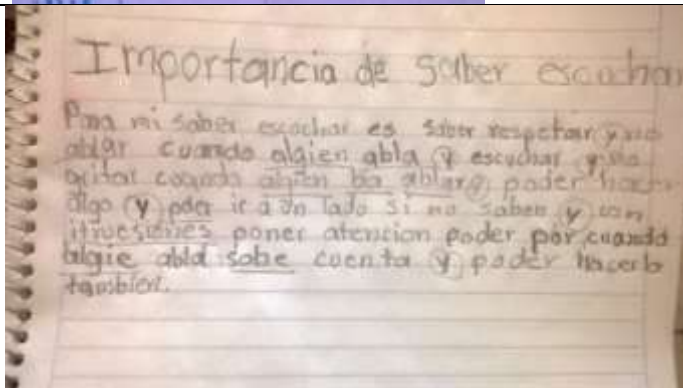 Importancia de saber escuchar
Para mi saber escuchar es saber respetar y no
ablar cuando algien abla y escuchar y no
gritar cuando algien ba ablar y poder hacer
algo y poder ir a un lado si no saben y con
poner atencion poder por cuando
algie abla sobe cuenta y poder hacerlo
tambien.